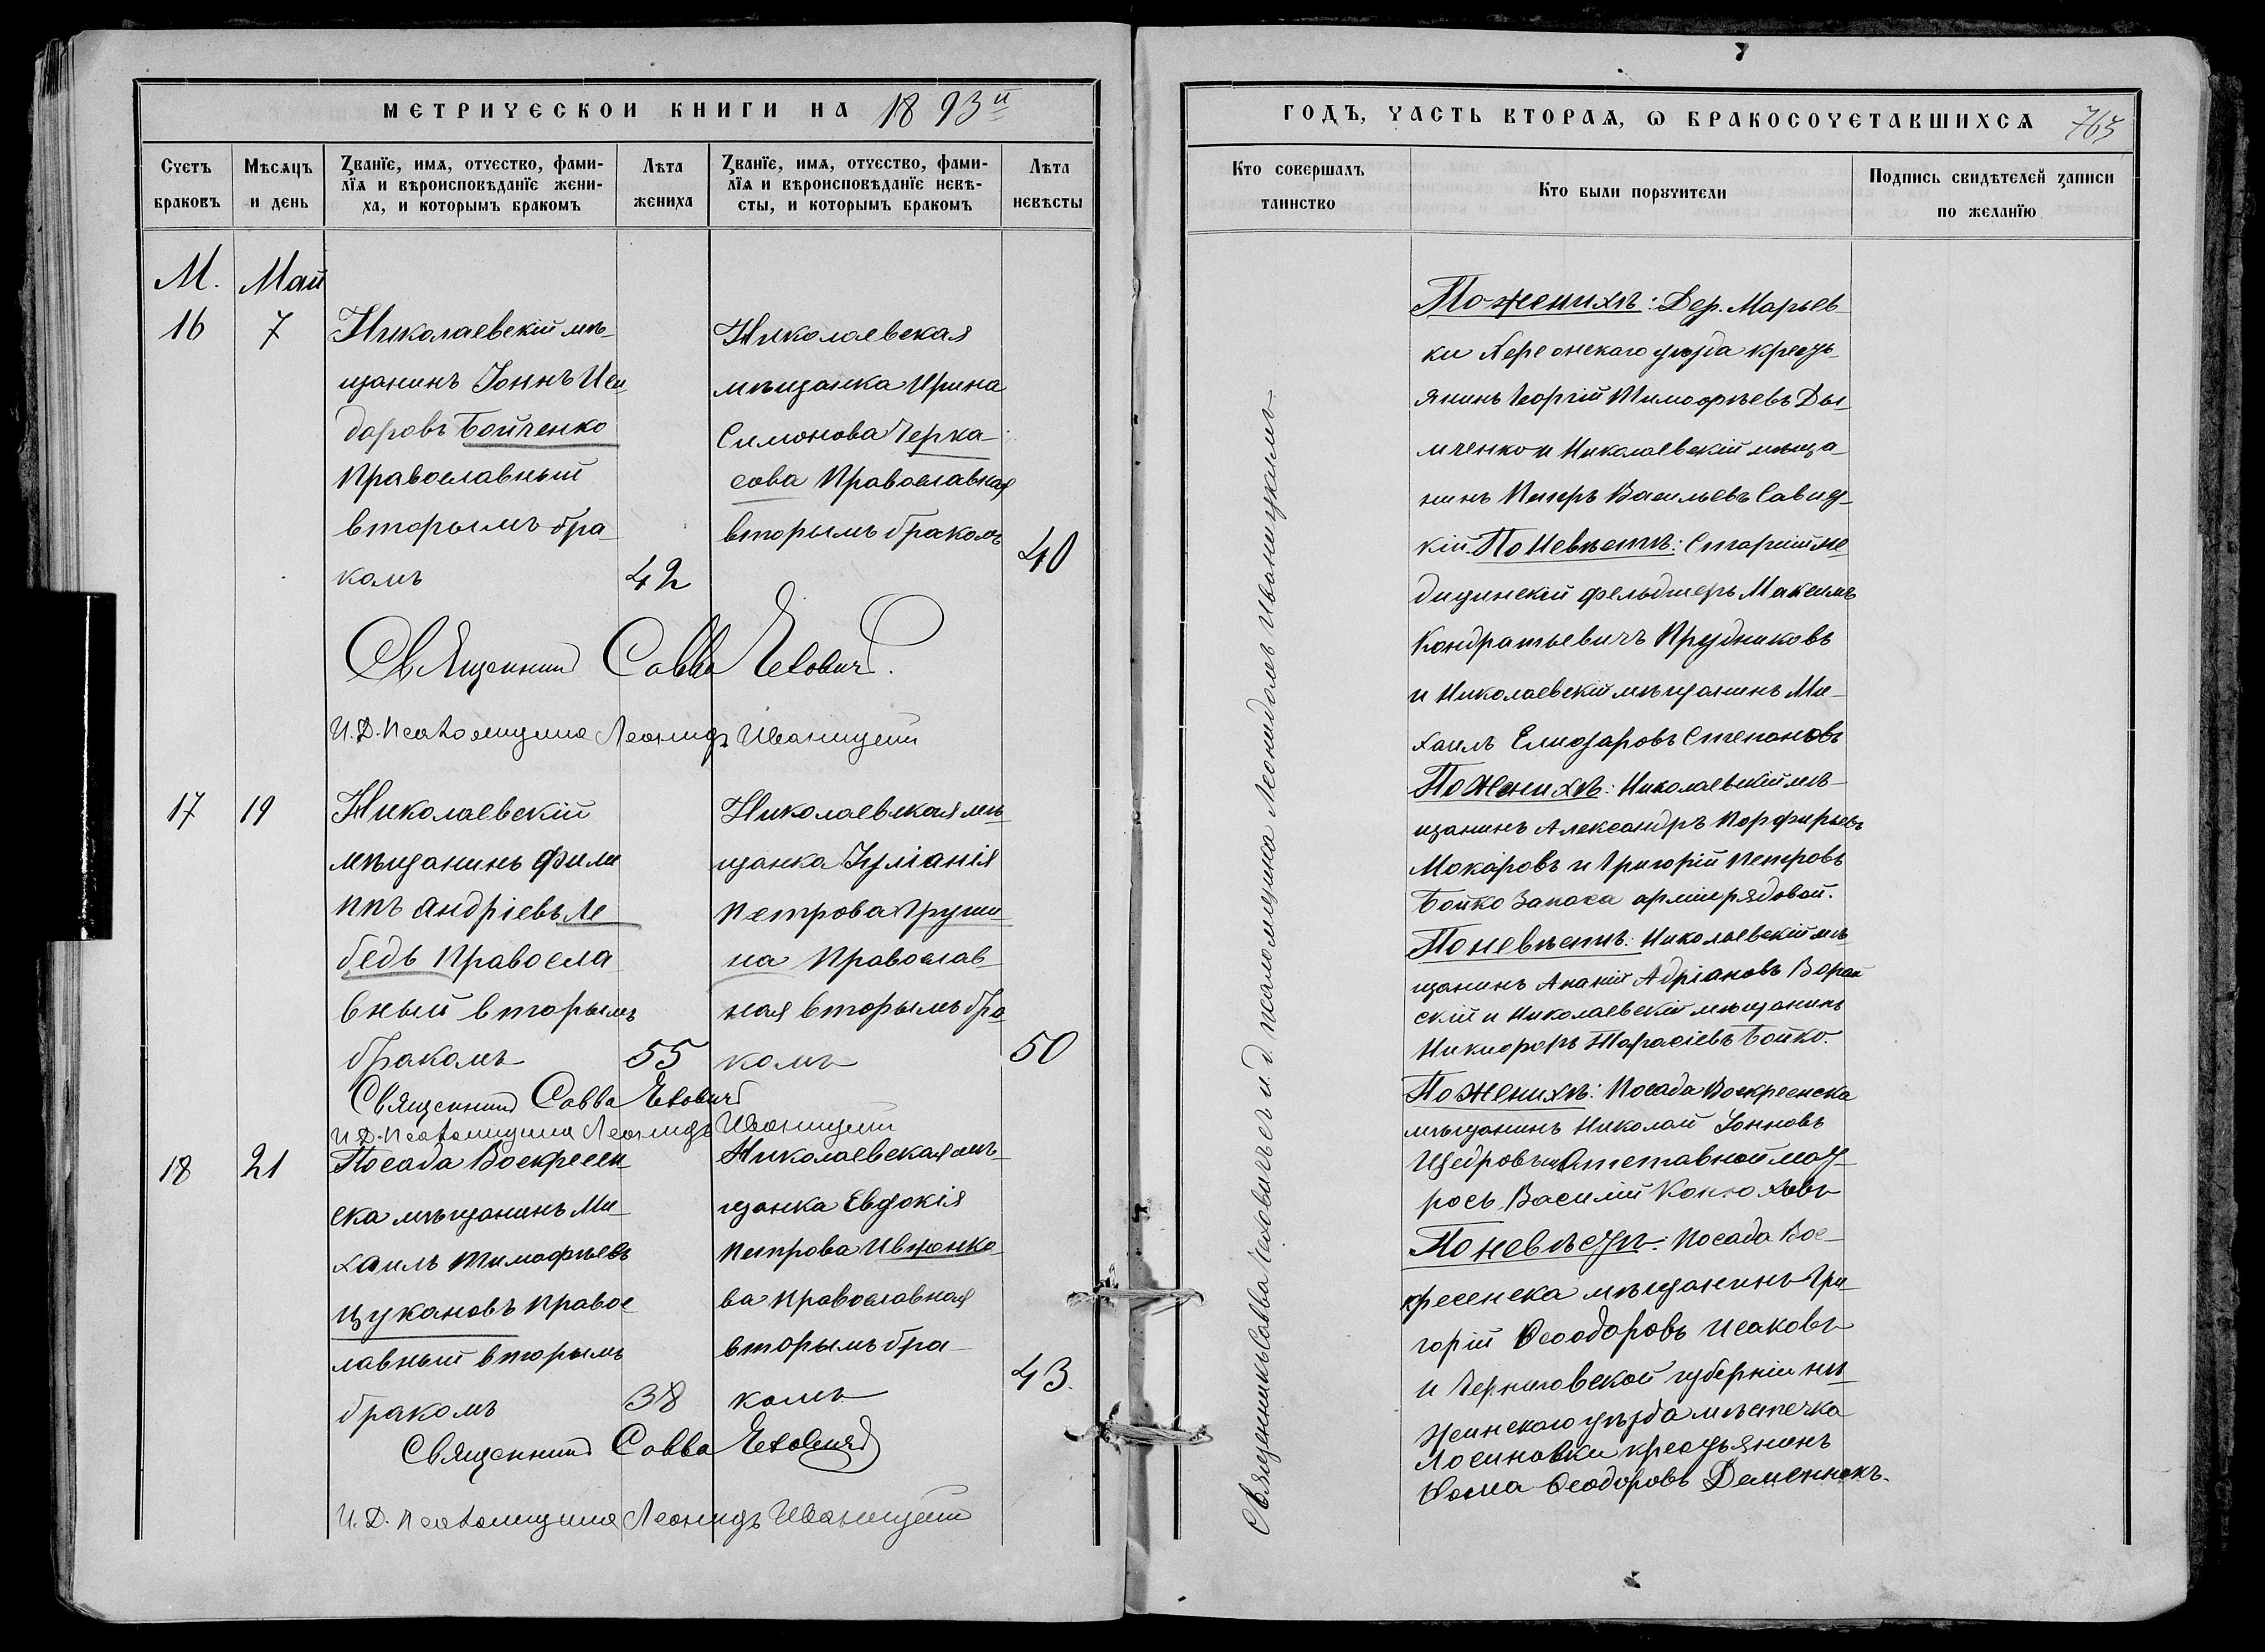 МЕТРИЧЕСКОЙ КНИГИ НА 1893й
Счетъ браковъ
Мѣсяцъ и день
Званїе, имѧ, отчество, фами-
лїѧ и вѣроисповѣданїе жени-
ха, и которымъ бракомъ
Лѣта жениха
Званїе, имѧ, отчество, фами-
лїѧ и вѣроисповѣданїе невѣ-
сты, и которымъ бракомъ
Лѣта невѣсты
М. Май
16 7
Николаевскій мѣ-
щанинъ Іоннъ Иси
доровъ Бойченко
Православный
вторымъ бра
комъ
42
Николаевская
мѣщанка Ирина
Симонова Черка-
сова Православная
вторымъ бракомъ
40
Священникъ Савва Ехович.
И.Д. Псаломщика Леонидъ Иваницкій
17 19
Николаевскій
мѣщанинъ Фили
ппъ Андріевъ Ле
бедь Правосла
вный вторымъ
бракомъ
55
Николаевская мѣ
щанка Іуліанія
Петрова Груши
на Православ
ная вторымъ бра
комъ
50
Священникъ Савва Ехович
И.Д. Псаломщика Леонидъ Иваницкій
18 21
Посада Воскресен
ска мѣщанинъ Ми-
хаилъ Тимофѣевъ
Цукановъ правос
лавный вторымъ
бракомъ
38
Николаевская мѣ-
щанка Евдокія
Петрова Ивженко
ва православная
вторымъ бра-
комъ
43.
Священникъ Савва Ехович
И.Д. Псаломщика Леонидъ Иваницкій
ГОДЪ, ЧАСТЬ ВТОРАѦ, Ѡ БРАКОСОЧЕТАВШИХСѦ 765
Кто совершалъ таинство
Кто были порꙋчители
Подпись свидѣтелей записи
по желанїю
Священникъ Савва Ехович и. д. псаломщика Леонидомъ Иваницкимъ
По женихѣ: Дер. Марьев
ки Херсонскаго уѣзда кресть
янинъ Георгій Тимофѣевъ Ды-
мченко и Николаевскій мѣща
нинъ Петръ Васильевъ Савиц-
кій По Невѣстѣ: Старшій ме
дицинскій фельдшеръ Максимъ
Кондратьевичъ Прудниковъ
и Николаевскій мѣщанинъ Ми-
хаилъ Елиазаровъ Степановъ
По женихѣ: Николаевскій мѣ-
щанинъ Александръ Порфирьевъ
Макаровъ и Григорій Петровъ
Бойко Запаса арміи рядовой.
По невѣстѣ: Николаевскій мѣ
щанинъ Ананій Адріановъ
скій и Николаевскій мѣщанинъ
Никифоръ Тарасіевъ Бойко.
По женихѣ: Посада Воскресенска
мѣщанинъ Николай Іонновъ
Щедровъ и Отставной мат-
росъ Василій Конюховъ
По невѣстѣ: Посада Вос-
кресенска мѣщанинъ Гри
горій Ѳеодоровъ Исаковъ
и Черниговской губерніи нѣ
жинскаго уѣзда мѣстечка
Лосиновки крестьянинъ
Ѳома Ѳеодоровъ